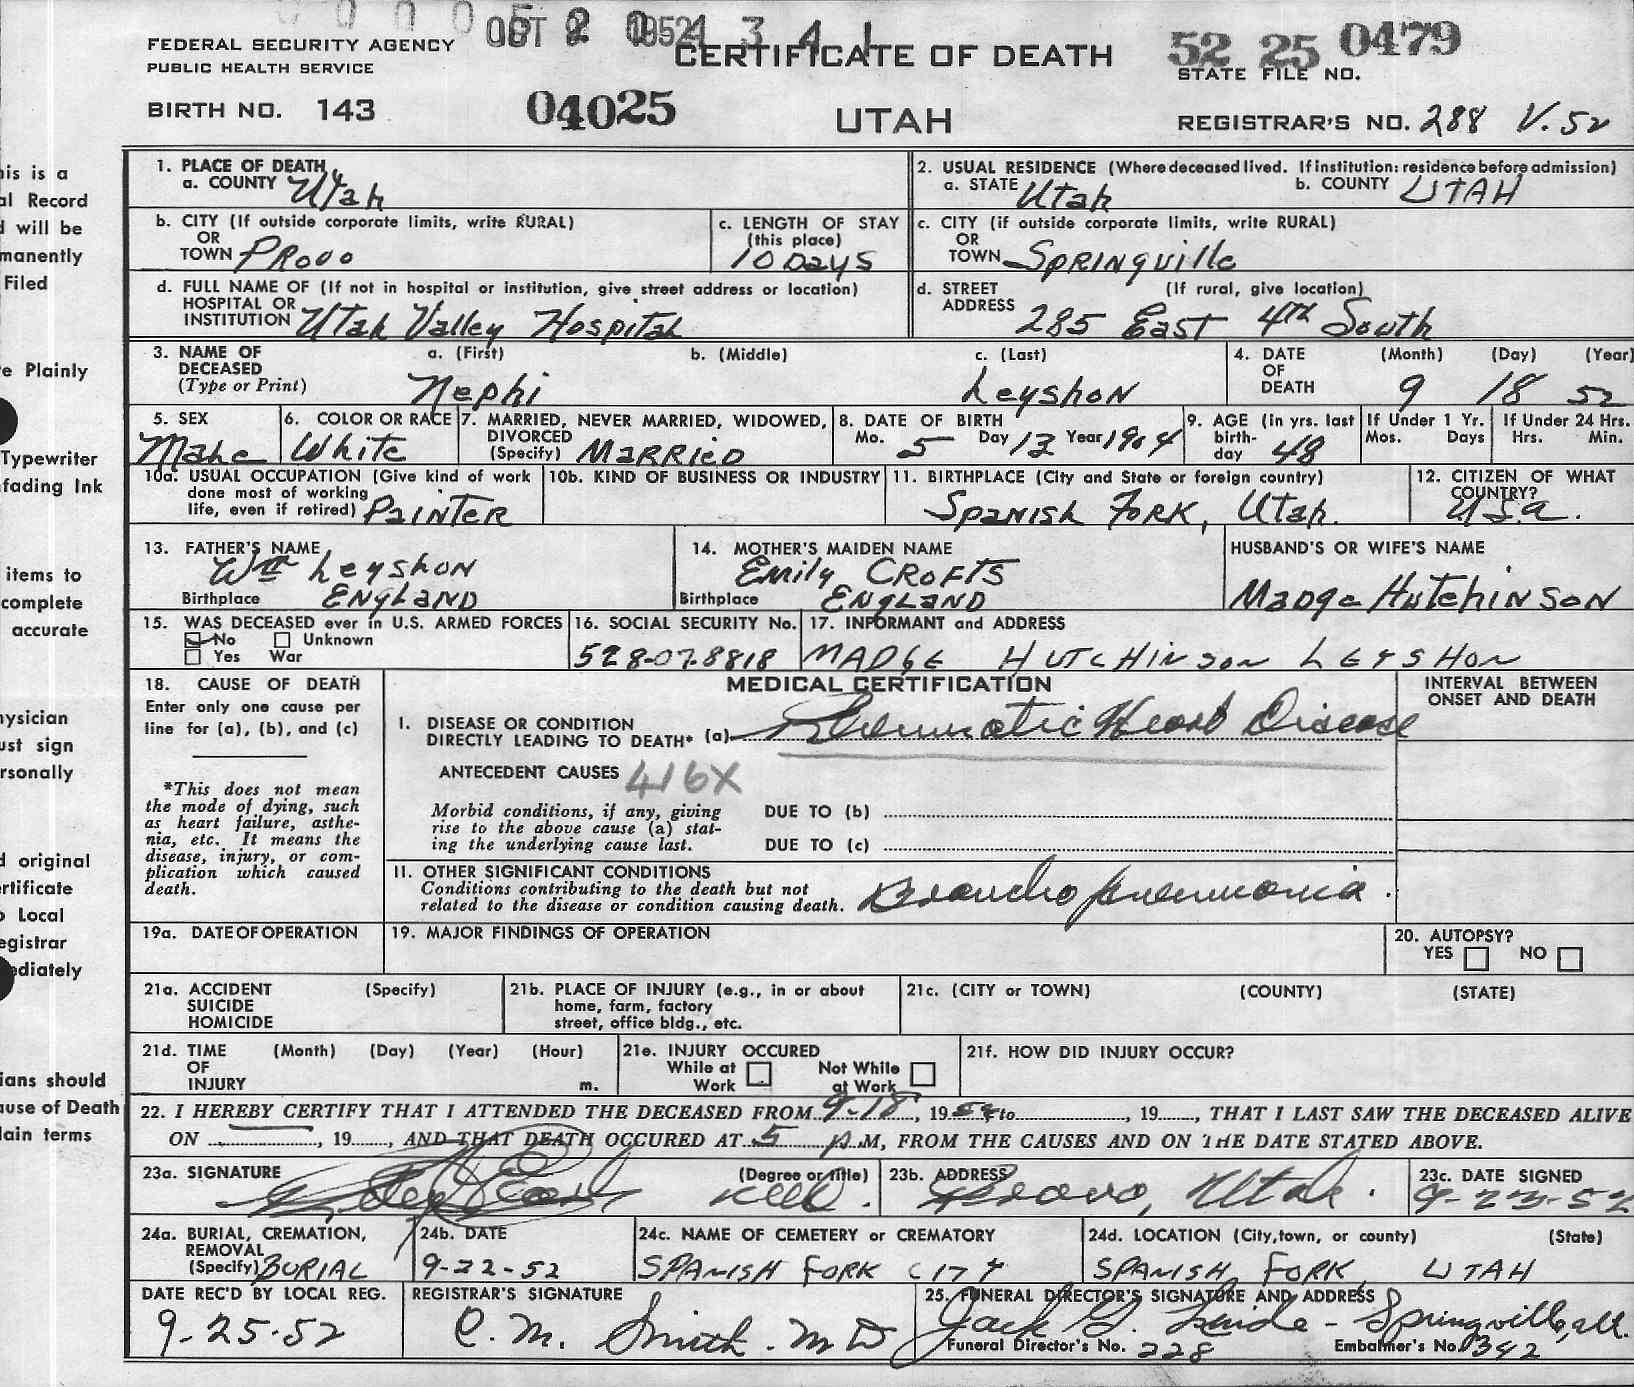 OCT 1952
FEDERAL SECURITY AGENCY
PUBLIC HEALTH SERVICE
CERTIFICATE OF DEATH
52 25 0479
STATE FILE NO.
BIRTH NO. 143
04025
UTAH
REGISTRAR'S NO. 288 V. 52
his is a
al Record
d will be
manently
Filed
e Plainly
Typewriter
fading Ink
items to
complete
accurate
hysician
ust sign
rsonally
d original
ertificate
o Local
egistrar
ediately
ians should
ause of Death
lain terms
1. PLACE OF DEATH
a. COUNTY Utah
2. USUAL RESIDENCE (Where deceased lived. If institution: residence before admission)
a. STATE Utah b. COUNTY UTAH
b. CITY (If outside corporate limits, write RURAL)
OR
TOWN PROVO
c. LENGTH OF STAY
(this place)
10 DAYS
c. CITY (if outside corporate limits, write RURAL)
OR
TOWN SPRINGVille
d. FULL NAME OF (If not in hospital or institution, give street address or location)
HOSPITAL OR
INSTITUTION Utah Valley Hospital
d. STREET (If rural, give location)
ADDRESS 285 East 4th South
3. NAME OF a. (First) b. (Middle) c. (Last)
DECEASED
(Type or Print) Nephi Leyshon
4. DATE (Month) (Day) (Year)
OF
DEATH 9 18 52
5. SEX
Male
6. COLOR OR RACE
White
7. MARRIED, NEVER MARRIED, WIDOWED,
DIVORCED
(Specify) MARRIED
8. DATE OF BIRTH
Mo. 5 Day 12 Year 1904
9. AGE (in yrs. last
birth-
day 48
If Under 1 Yr.
Mos. Days
If Under 24 Hrs.
Hrs. Min.
10a. USUAL OCCUPATION (Give kind of work
done most of working
life, even if retired) PAINTER
10b. KIND OF BUSINESS OR INDUSTRY
11. BIRTHPLACE (City and State or foreign country)
SPANISH FORK, Utah.
12. CITIZEN OF WHAT
COUNTRY?
U.S.A.
13. FATHER'S NAME
Wm Leyshon
Birthplace ENGLAND
14. MOTHER'S MAIDEN NAME
Emily CROFTS
Birthplace ENGLAND
HUSBAND'S OR WIFE'S NAME
Madge Hutchinson
15. WAS DECEASED ever in U.S. ARMED FORCES
No Unknown
Yes War
16. SOCIAL SECURITY No.
528-07-8818
17. INFORMANT and ADDRESS
MADGE HUTCHINSON LEYSHON
18. CAUSE OF DEATH
Enter only one cause per
line for (a), (b), and (c)
*This does not mean
the mode of dying, such
as heart failure, asthe-
nia, etc. It means the
disease, injury, or com-
plication which caused
death.
MEDICAL CERTIFICATION
INTERVAL BETWEEN
ONSET AND DEATH
I. DISEASE OR CONDITION
DIRECTLY LEADING TO DEATH* (a) Rheumatic Heart Disease
ANTECEDENT CAUSES 416X
Morbid conditions, if any, giving
rise to the above cause (a) stat-
ing the underlying cause last.
DUE TO (b)
DUE TO (c)
II. OTHER SIGNIFICANT CONDITIONS
Conditions contributing to the death but not
related to the disease or condition causing death. Broncho pneumonia.
19a. DATE OF OPERATION
19. MAJOR FINDINGS OF OPERATION
20. AUTOPSY?
YES NO
21a. ACCIDENT (Specify)
SUICIDE
HOMICIDE
21b. PLACE OF INJURY (e.g., in or about
home, farm, factory
street, office bldg., etc.
21c. (CITY or TOWN) (COUNTY) (STATE)
21d. TIME (Month) (Day) (Year) (Hour)
OF
INJURY m.
21e. INJURY OCCURED
While at Work Not While at Work
21f. HOW DID INJURY OCCUR?
22. I HEREBY CERTIFY THAT I ATTENDED THE DECEASED FROM 9-18, 19 to , 19 , THAT I LAST SAW THE DECEASED ALIVE
ON , 19 , AND THAT DEATH OCCURED AT 5 P.M, FROM THE CAUSES AND ON THE DATE STATED ABOVE.
23a. SIGNATURE (Degree or title)
23b. ADDRESS
Provo, Utah.
23c. DATE SIGNED
9-23-52
24a. BURIAL, CREMATION,
REMOVAL
(Specify) BURIAL
24b. DATE
9-22-52
24c. NAME OF CEMETERY OR CREMATORY
SPANISH FORK CITY
24d. LOCATION (City, town, or county) (State)
SPANISH FORK, UTAH
DATE REC'D BY LOCAL REG.
9-25-52
REGISTRAR'S SIGNATURE
C. M. Smith. M D
25. FUNERAL DIRECTOR'S SIGNATURE AND ADDRESS
Jack G. - Springville, Ut.
Funeral Director's No. 228 Embalmer's No. 342